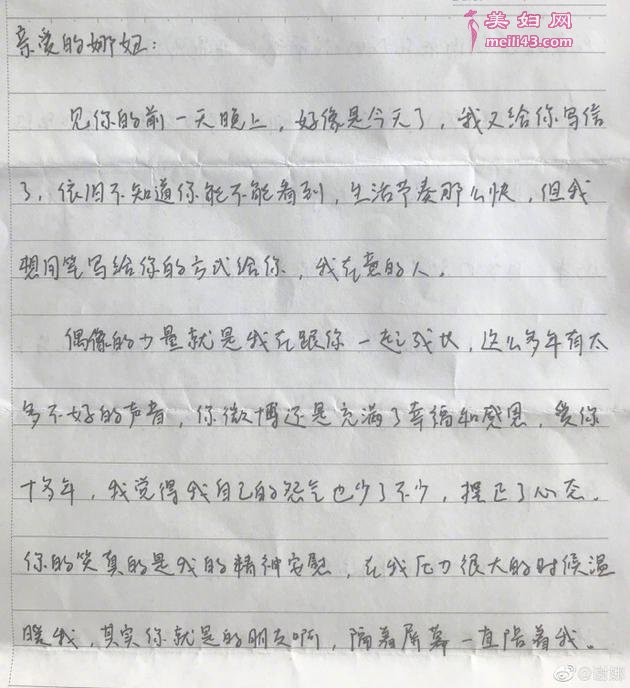 美妇网
meili43.com
亲爱的娜姐：
见你的前一天晚上，好像是今天了，我又给你写信
了，依旧不知道你能不能看到，生活节奏那么快，但我
想用笔写给你的方式给你，我在意的人。
偶像的力量就是我在跟你一起成长，这么多年有太
多不好的声音，你微博还是充满了幸福和感恩，爱你
十多年，我觉得我自己的怨气也少了不少，摆正了心态。
你的笑真的是我的精神安慰，在我压力很大的时候温
暖我，其实你就是的朋友啊，隔着屏幕一直陪着我。
@谢娜